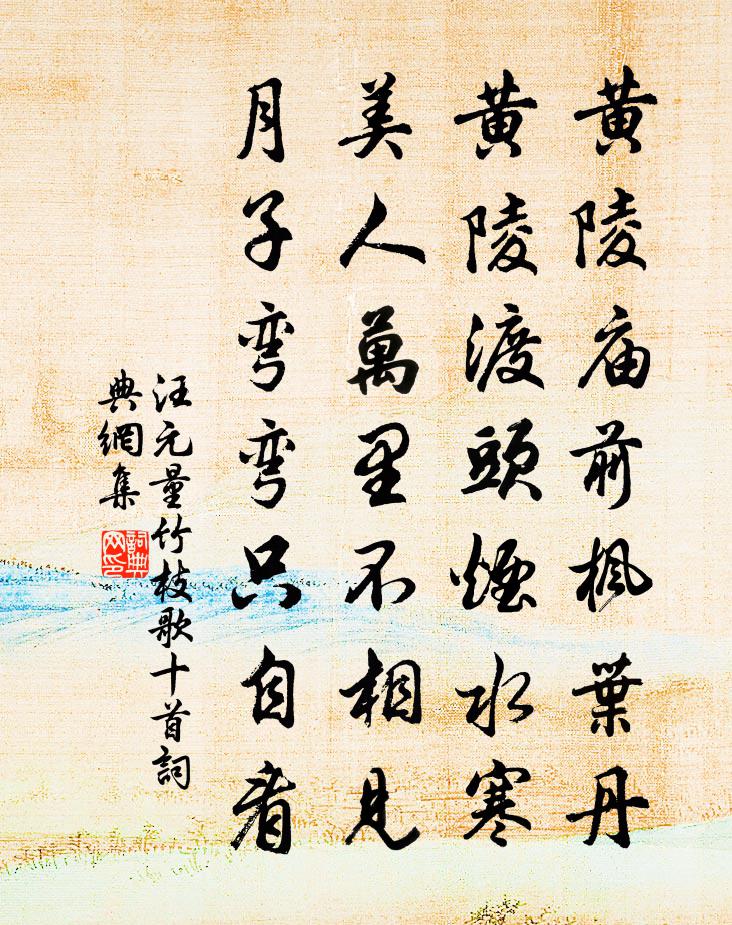 黄陵庙前枫葉丹
黄陵渡頭煙水寒
美人萬里不相見
月子弯弯只自看
汪元量竹枝歌十首詞
典網集
詞典
网印